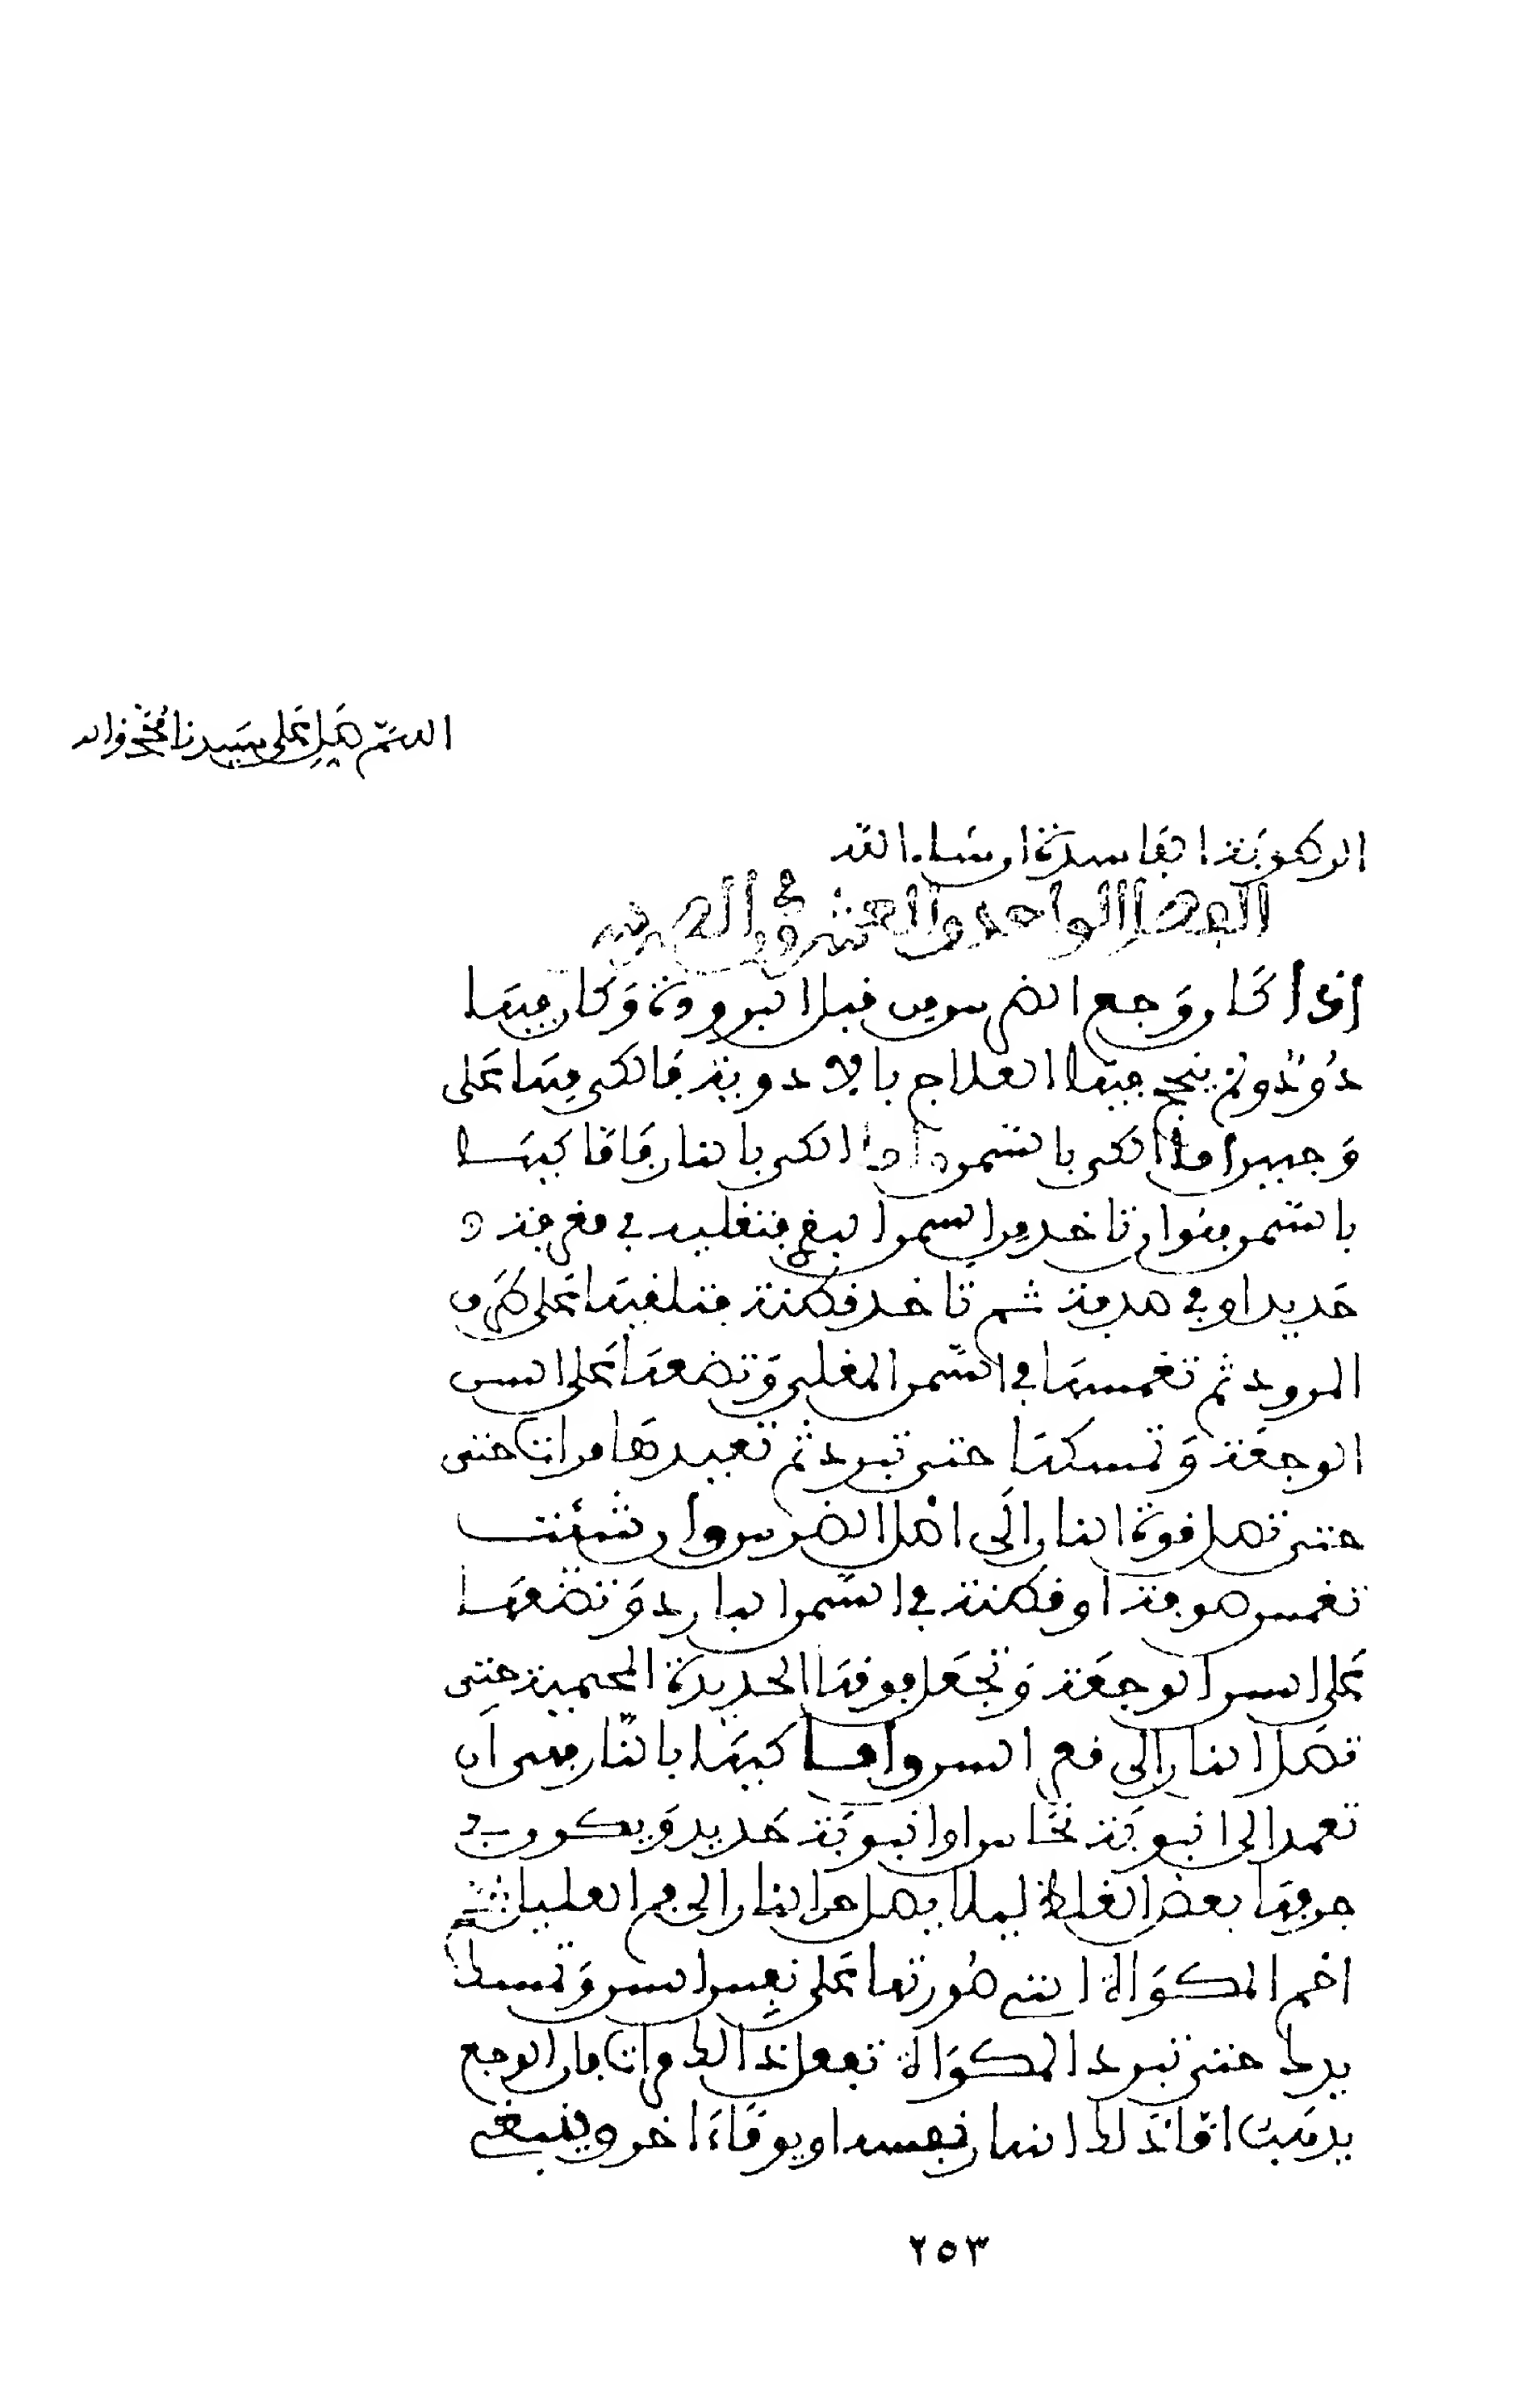 اللهم صل على سيدنا محمد واله
الرطوبة الفاسدة ان شاء الله
الفصل الواحد والعشرون في كي الضرس
إذا كان وجع الضرس من قبل البرودة وكان فيها
دود ولم ينجح فيها العلاج بالادوية فالكي فيها على
وجهين إما الكي بالسمن وإما الكي بالنار فاما كيها
بالسمن فهو ان تاخذ من السمن البقري فتغليه في مغرفة
حديد او في صدفة ثم تاخذ قطنة فتلفها على طرف
المرود ثم تغمسها في السمن المغلي وتضعها على السن
الوجعة وتمسكها حتى تبرد ثم تعيدها مرات حتى
حتى تصل قوة النار الى اصل الضرس وإن شئت
تغمس صوفة او قطنة في السمن البارد وتضعها
على السن الوجعة وتجعل فوقها الحديدة المحمية حتى
تصل النار الى قعر السن وأما كيها بالنار فهي ان
تعمد الى انبوبة نحاس او انبوبة حديد ويكون في
جرمها بعض الغلظ ليلا يصل حر النار الى فم العليل ثم
احم المكواة التي صورتها على نفس السن وتمسك
يدك حتى تبرد المكواة تفعل ذالك مرات فان الوجع
يذهب اما ذلك النهار نفسه او يوما ءاخر وينبغي
٢٥٣